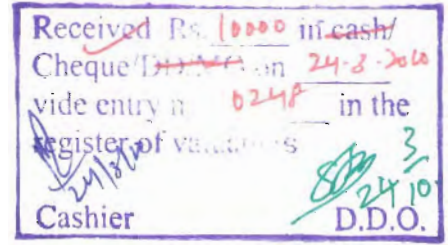 Received Rs. 10000 in cash/
Cheque/DD/MO on 24-3-2010
vide entry n 0248 in the
register of valuables
24/3/10
3
24 10
Cashier D.D.O.